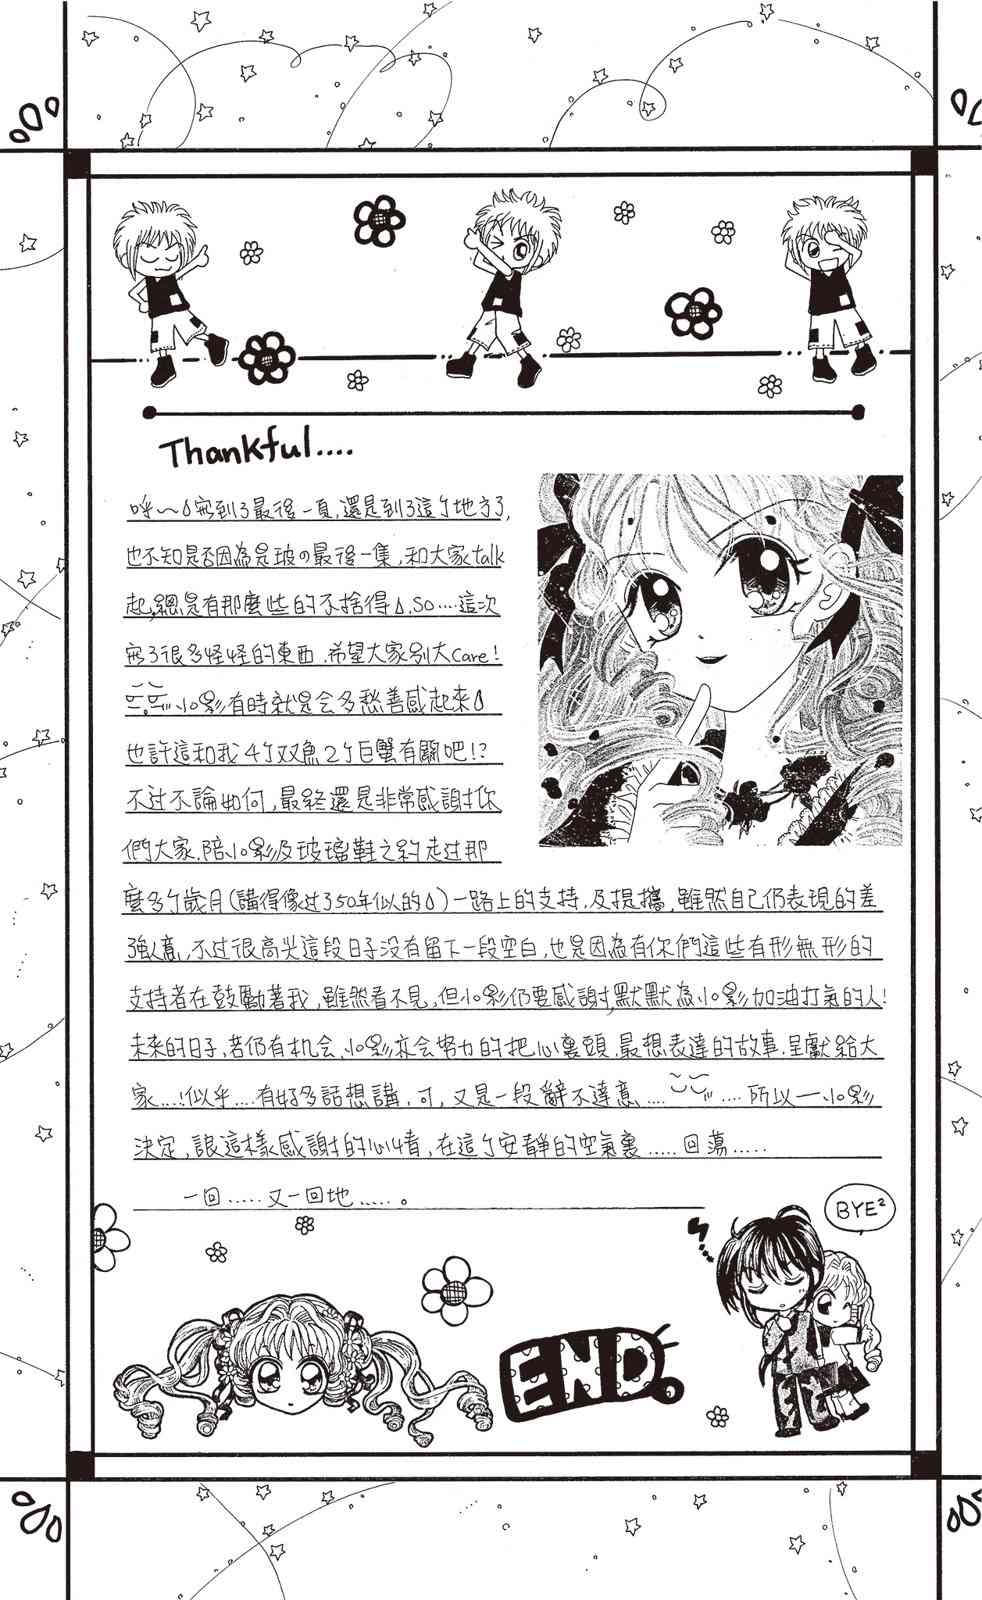 Thankful....
呼~寫到了最後一頁,還是到了這個地方了,
也不知是否因為是玻の最後一集,和大家talk
起,總是有那麼些的不捨得,So....這次
寫了很多怪怪的東西.希望大家別大Care!
小影有時就是会多愁善感起來
也許這和我4个双魚2个巨蟹有關吧!?
不过不論如何,最終還是非常感謝你
們大家.陪小影及玻璃鞋之約走过那
麼多个歲月(講得像过了50年似的)一路上的支持,及提攜,雖然自己仍表現的差
強人意,不过很高兴這段日子没有留下一段空白,也是因為有你們這些有形無形的
支持者在鼓勵著我,雖然看不見,但小影仍要感謝,默默為小影加油打氣的人!
未來的日子,若仍有机会,小影亦会努力的把心裏頭.最想表達的故事.呈獻給大
家....!似乎....有好多話想講,可,又是一段辭不達意.... ....所以一小影
決定,讓這樣感謝的心情,在這个安靜的空氣裏.....回蕩.....
一回.....又一回地.....。
BYE²
END